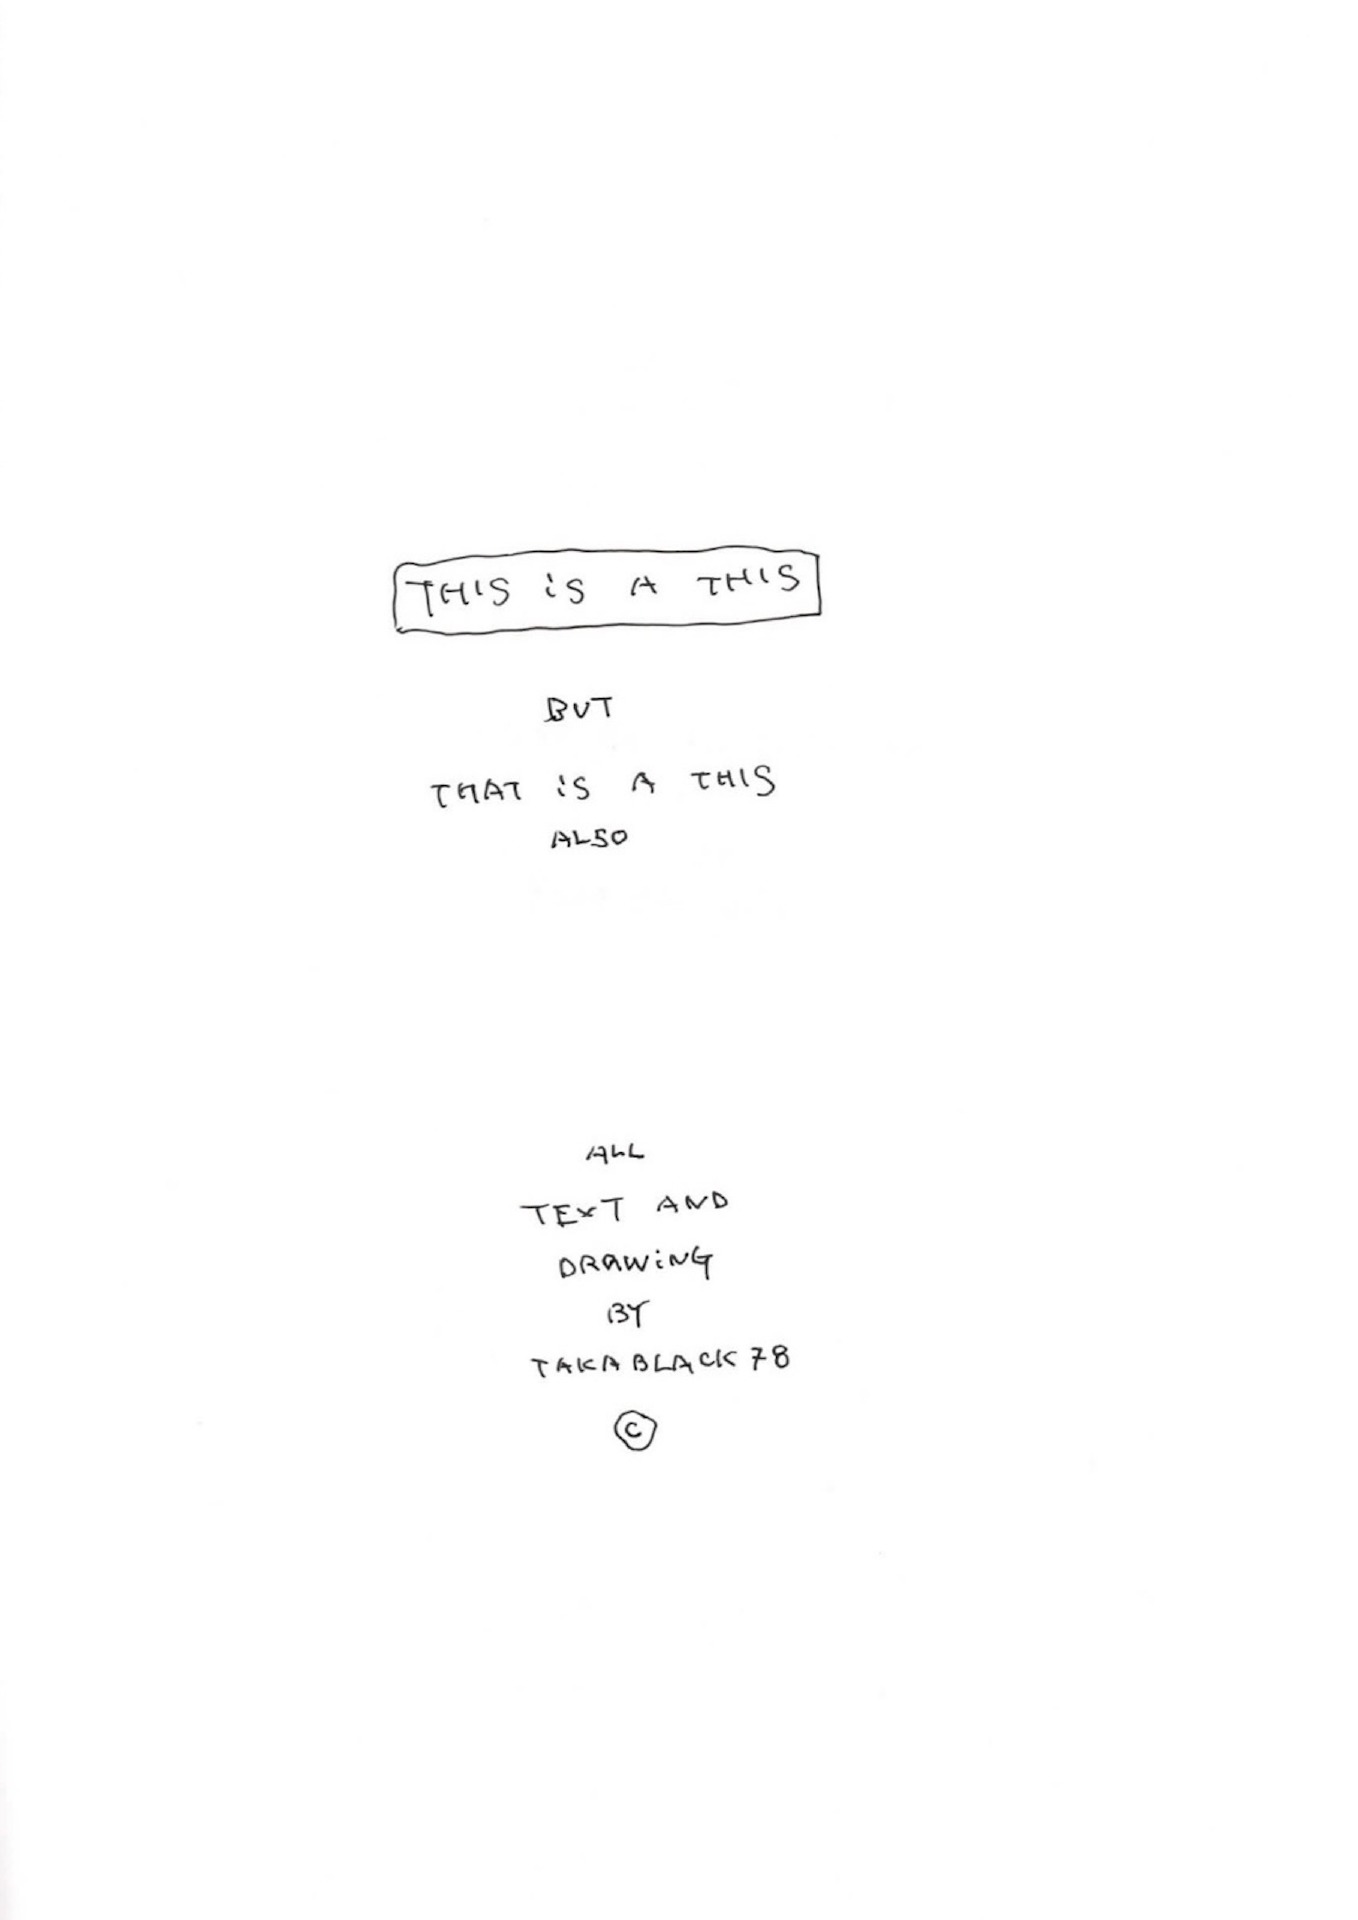 THIS iS A THIS
BUT
THAT iS A THIS
ALSO
ALL
TEXT AND
DRAWiNG
BY
TAKABLACK78
©